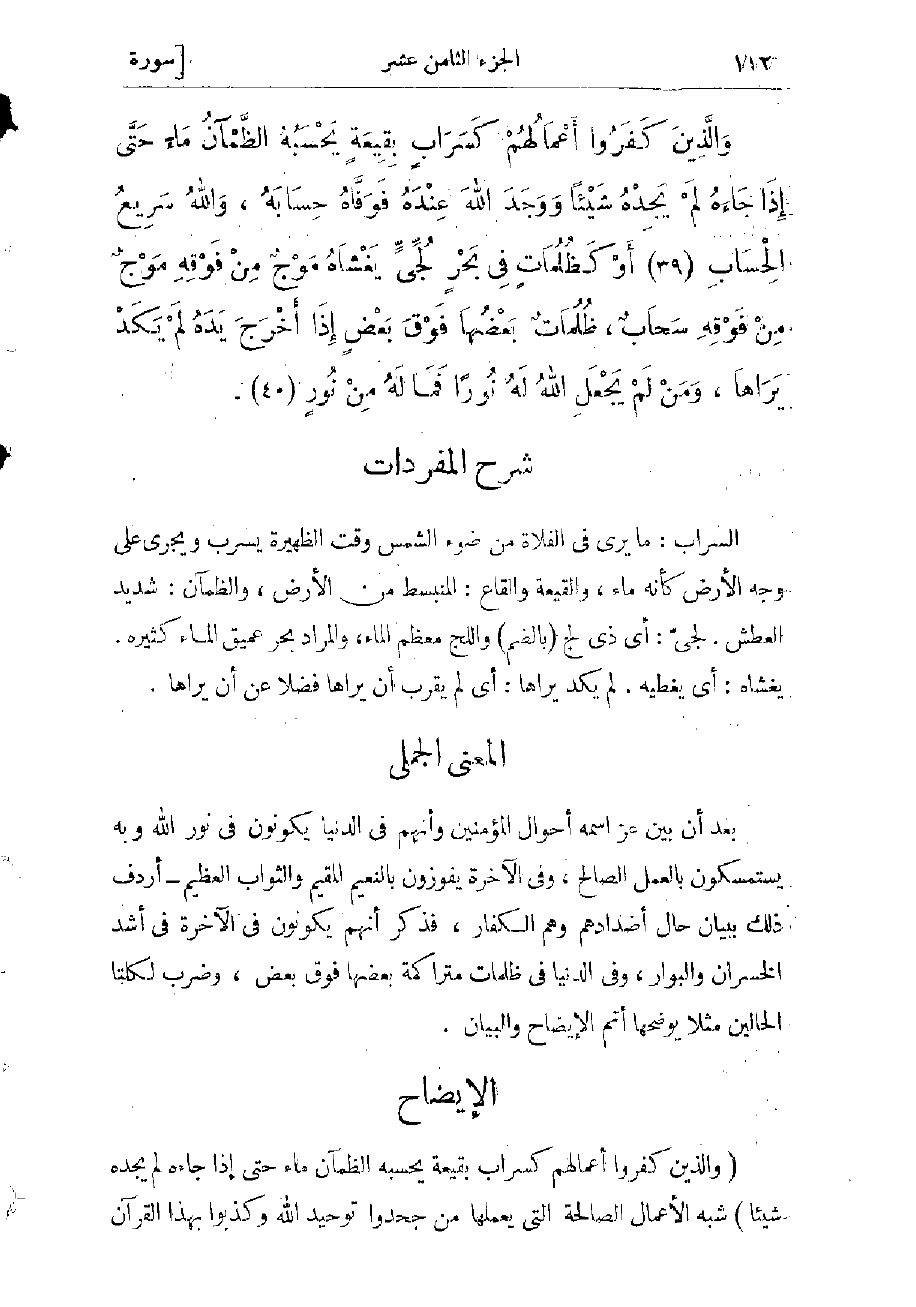 ١١٢ الجزء الثامن عشر [سورة
وَالَّذِينَ كَفَرُوا أَعْمَالُهُمْ كَسَرَابٍ بِقِيعَةٍ يَحْسَبُهُ الظَّمْآنُ مَاءً حَتَّى
إِذَا جَاءَهُ لَمْ يَجِدْهُ شَيْئًا وَوَجَدَ اللهَ عِنْدَهُ فَوَفَّاهُ حِسَابَهُ ، وَاللهُ سَرِيعُ
الْحِسَابِ (٣٩) أَوْ كَظُلُمَاتٍ فِي بَحْرٍ لُجِّيٍّ يَغْشَاهُ مَوْجٌ مِنْ فَوْقِهِ مَوْجٌ
مِنْ فَوْقِهِ سَحَابٌ ، ظُلُمَاتٌ بَعْضُهَا فَوْقَ بَعْضٍ إِذَا أَخْرَجَ يَدَهُ لَمْ يَكَدْ
يَرَاهَا ، وَمَنْ لَمْ يَجْعَلِ اللهُ لَهُ نُورًا فَمَا لَهُ مِنْ نُورٍ (٤٠) .
شرح المفردات
السراب : ما يرى فى الفلاة من ضوء الشمس وقت الظهيرة يسرب ويجرى على
وجه الأرض كأنه ماء ، والقيعة والقاع : المنبسط من الأرض ، والظمآن : شديد
العطش . لجىّ : أى ذى لج (بالضم) واللج معظم الماء، والمراد بحر عميق الماء كثيره .
يغشاه : أى يغطيه . لم يكد يراها : أى لم يقرب أن يراها فضلا عن أن يراها .
المعنى الجملى
بعد أن بين عز اسمه أحوال المؤمنين وأنهم فى الدنيا يكونون فى نور الله وبه
يستمسكون بالعمل الصالح ، وفى الآخرة يفوزون بالنعيم المقيم والثواب العظيم ــ أردف
ذلك ببيان حال أضدادهم وهم الكفار ، فذكر أنهم يكونون فى الآخرة فى أشد
الخسران والبوار ، وفى الدنيا فى ظلمات متراكمة بعضها فوق بعض ، وضرب لكلتا
الحالين مثلا يوضحها أتم الإيضاح والبيان .
الإيضاح
( والذين كفروا أعمالهم كسراب بقيعة يحسبه الظمآن ماء حتى إذا جاءه لم يجده
شيئا ) شبه الأعمال الصالحة التى يعملها من جحدوا توحيد الله وكذبوا بهذا القرآن